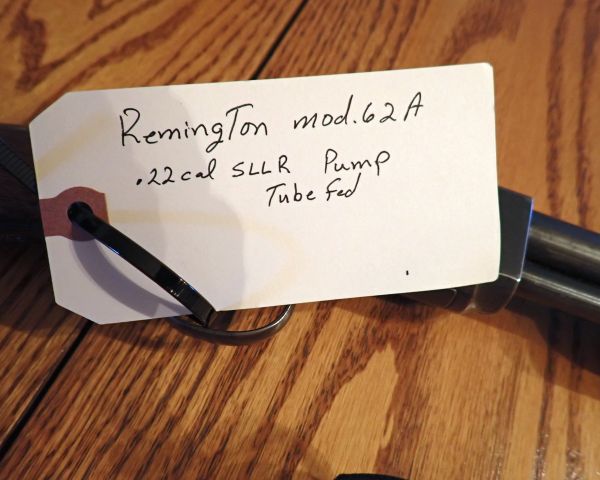 Remington mod.62A
.22cal SLLR Pump
Tube Fed